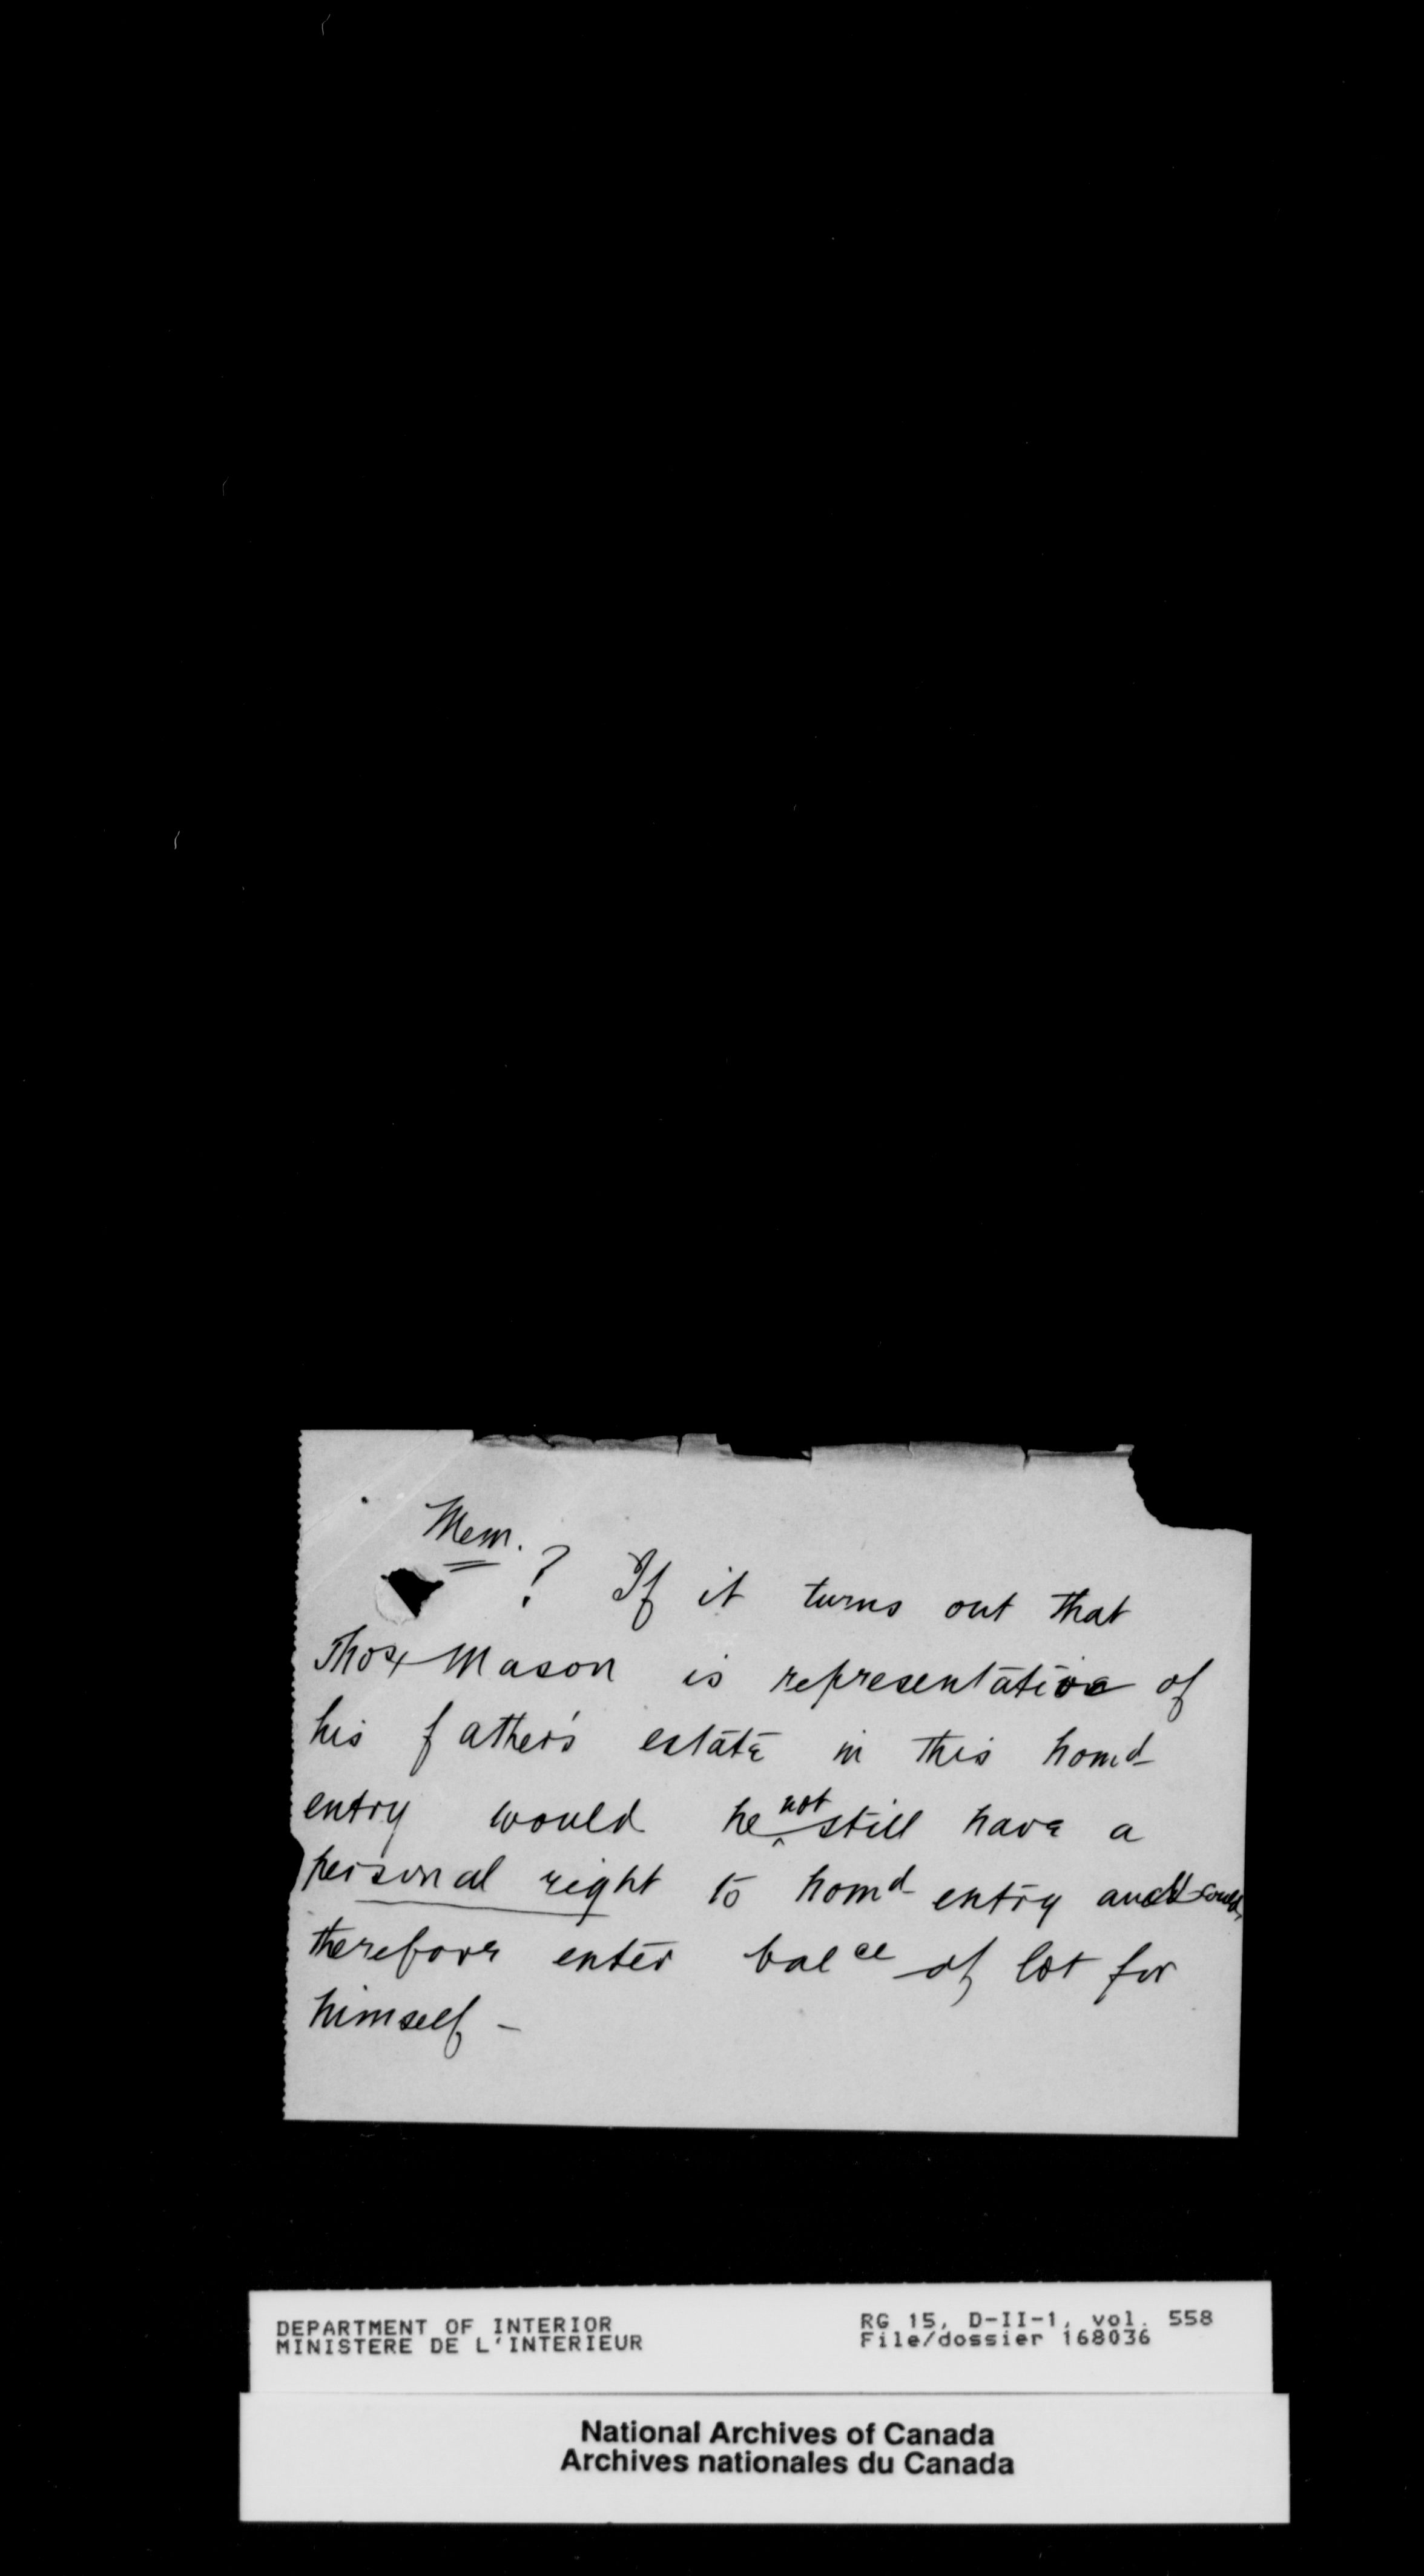 Mem.
? If it turns out that
Thos Mason is representative of
his father's estate in this homd
entry would he not still have a
personal right to homd entry and could
therefore enter balce of lot for
himself -
DEPARTMENT OF INTERIOR
MINISTERE DE L'INTERIEUR
RG 15, D-II-1, vol. 558
File/dossier 168036
National Archives of Canada
Archives nationales du Canada